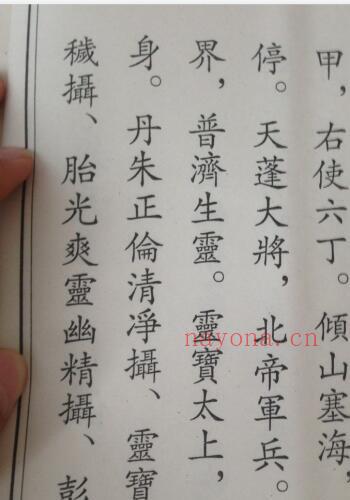 甲，右使六丁。傾山塞海，
停。天蓬大將，北帝軍兵。
界，普濟生靈。靈寶太上，
身。丹朱正倫清淨攝、靈寶
穢攝、胎光爽靈幽精攝、彭
nayona.cn